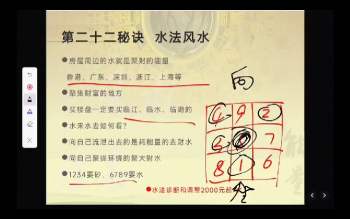 第二十二秘诀 水法风水
房屋周边的水就是聚财的能量
香港、广东、深圳、浙江、上海等
聚集财富的地方
买楼盘一定要买临江、临水、临湖的
水来水去如何看？
向自己流泄出去的是耗能量的去财水
向自己聚拢环绕的聚大财水
1234要砂、6789要水
水法诊断和调整2000元起
向
4 9 2
7
8 1 6
坐